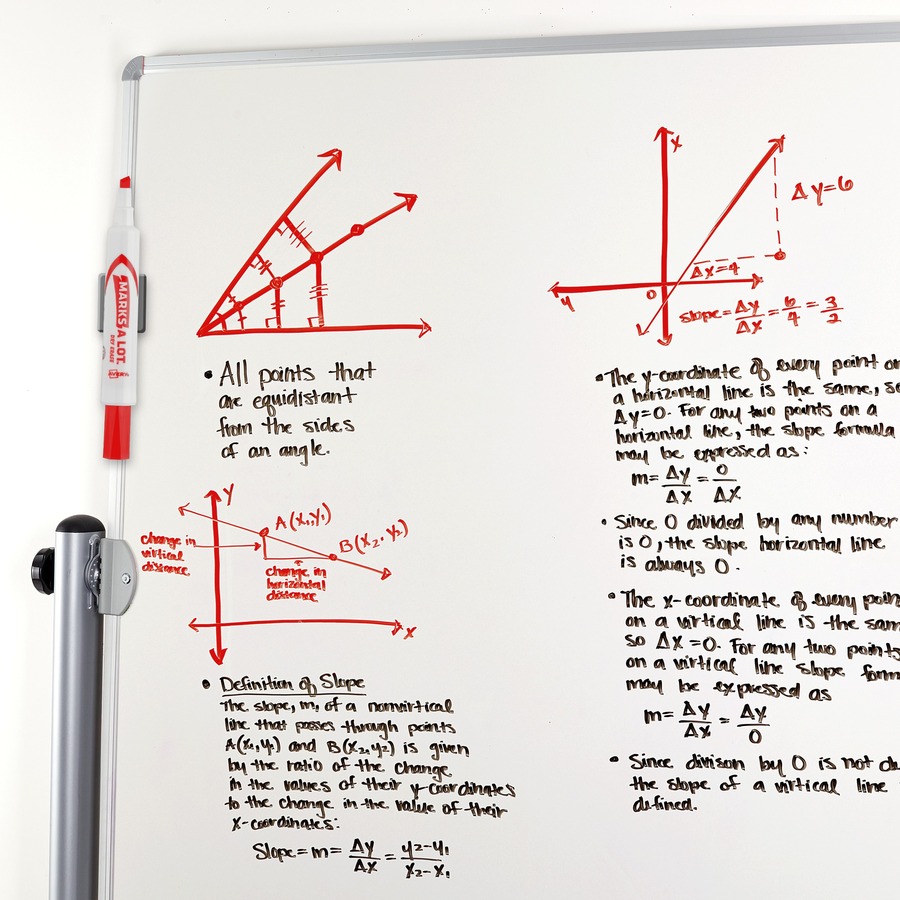 MARKS A LOT.
DRY ERASE
Avery
• All points that
are equidistant
from the sides
of an angle.
Y
A(x₁,y₁)
B(x₂,y₂)
change in
virtical
distance
change in
horizontal
distance
x
• Definition of Slope
The slope, m, of a nonvirtical
line that passes through points
A(x₁,y₁) and B(x₂,y₂) is given
by the ratio of the change
in the values of their y-coordinates
to the change in the value of their
x-coordinates:
Slope=m= Δy/Δx = y₂-y₁/x₂-x₁
x
Δy=6
Δx=4
y
0
slope= Δy/Δx = 6/4 = 3/2
• The y-coordinate of every point on
a horizontal line is the same, so
Δy=0. For any two points on a
horizontal line, the slope formula
may be expressed as:
m= Δy/Δx = 0/Δx
• Since 0 divided by any number
is 0, the slope horizontal line
is always 0.
• The x-coordinate of every poin
on a virtical line is the sam
so Δx=0. For any two points
on a virtical line slope form
may be expressed as
m= Δy/Δx = Δy/0
• Since divison by 0 is not de
the slope of a virtical line
defined.